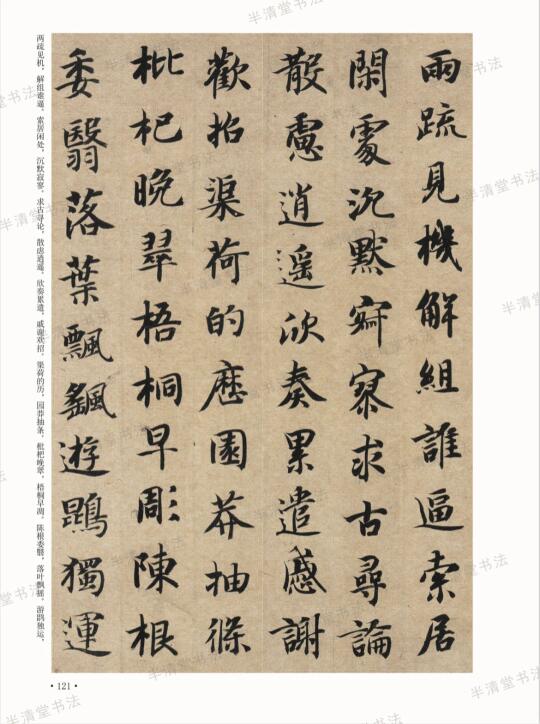 兩疏見機解組誰逼索居
閑處沉默寂寥求古尋論
散慮逍遥欣奏累遣慼謝
歡招渠荷的歷園莽抽條
枇杷晚翠梧桐早彫陳根
委翳落葉飄颻遊鵾獨運
两疏见机，解组谁逼。索居闲处，沉默寂寥。求古寻论，散虑逍遥。欣奏累遣，戚谢欢招。渠荷的历，园莽抽条。枇杷晚翠，梧桐早凋。陈根委翳，落叶飘摇。游鹍独运，
·121·
半清堂书法